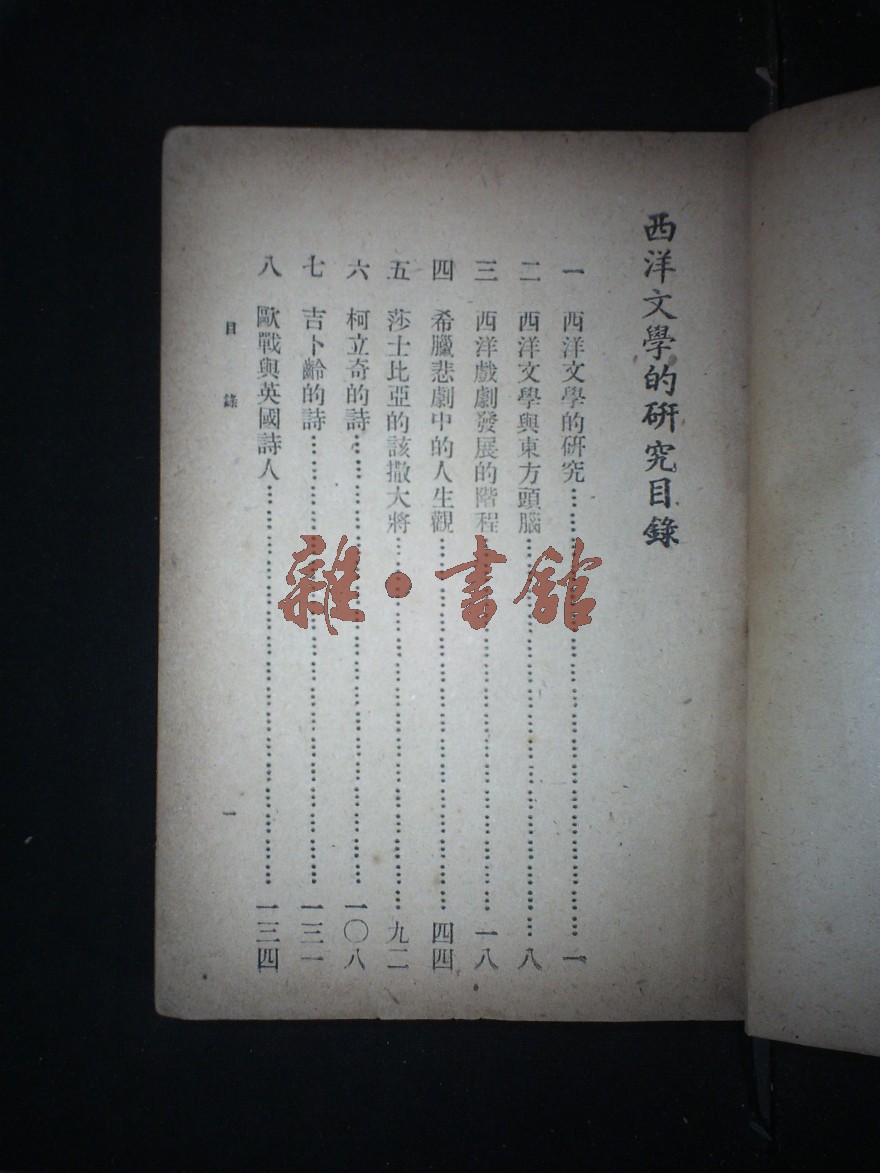 西洋文學的研究目錄
一　西洋文學的研究……一
二　西洋文學與東方頭腦……八
三　西洋戲劇發展的階程……一八
四　希臘悲劇中的人生觀……四四
五　莎士比亞的該撒大將……九二
六　柯立奇的詩……一〇八
七　吉卜齡的詩……一三一
八　歐戰與英國詩人……一三四
目錄
一
雜·書館